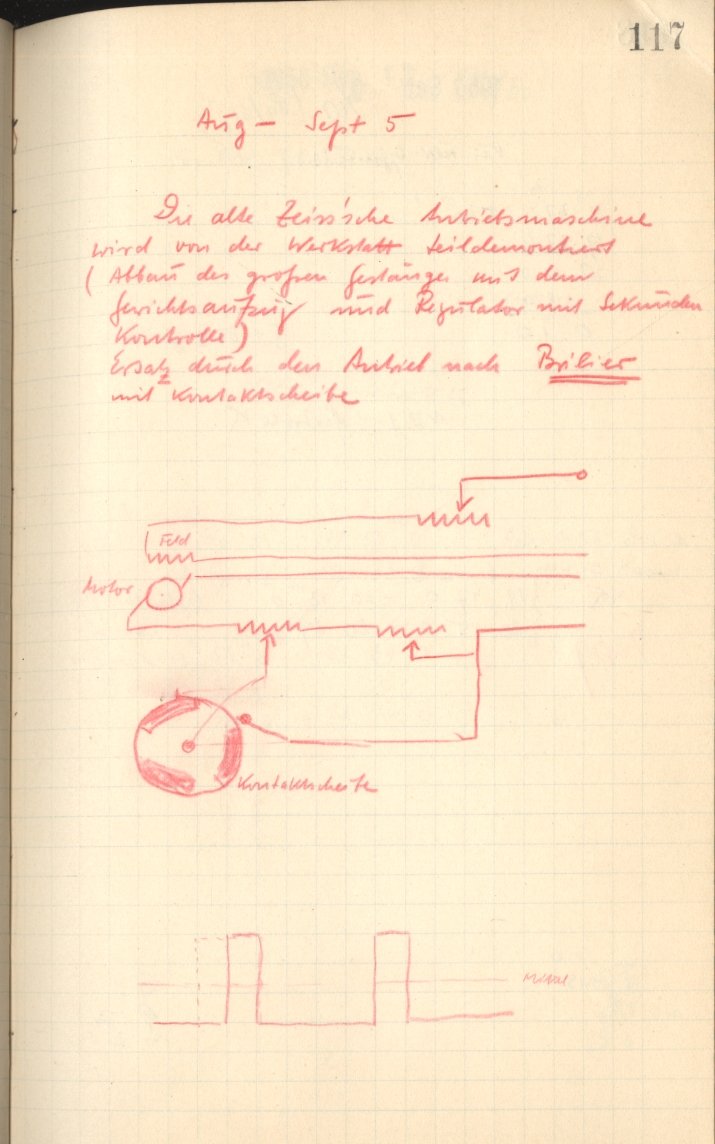 117
Aug – Sept 5
Die alte Zeiss'sche Antriebsmaschine
wird von der Werkstatt teildemontiert
(Abbau des großen Gestänges mit dem
Gewichtsaufzug und Regulator mit Sekunden
Kontrolle)
Ersatz durch den Antrieb nach
mit Kontaktscheibe
Feld
Motor
Kontaktscheibe
Mittel